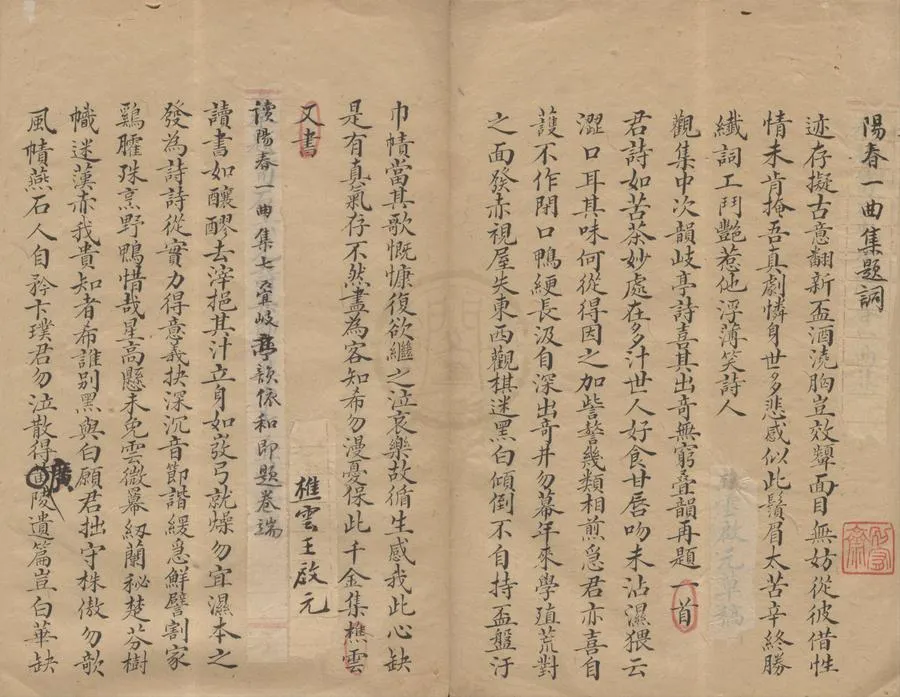 陽春一曲集題詞
迹存擬古意翻新盃酒澆胸豈效顰面目無妨從彼借性
情未肯掩吾真劇憐身世多悲感似此鬚眉太苦辛終勝
纖詞工鬥艷惹他浮薄笑詩人
觀集中次韻岐亭詩喜其出奇無窮疊韻再題一首
君詩如苦茶妙處在多汁世人好食甘唇吻未沾濕猥云
澀口耳其味何從得因之加訾謷幾類相煎急君亦喜自
護不作閉口鴨綆長汲自深出奇井勿幕年來學殖荒對
之面發赤視屋失東西觀棋迷黑白傾倒不自持盃盤汙
巾幘當其歌慨慷復欲繼之泣哀樂故循生感我此心缺
是有真氣存不然盡為客知希勿漫憂保此千金集樵雲
又書
樵雲王啟元
讀陽春一曲集七疊岐亭韻依和即題卷端
讀書如釀醪去滓挹其汁立身如彀弓就燥勿宜濕本之
發為詩詩從實力得意義抉深沉音節諧緩急鮮譬割家
鷄臛珠烹野鴨惜哉星高懸未免雲微幕紉蘭秘楚芬樹
幟迷漢赤我貴知者希誰別黑與白願君拙守株傲勿欹
風幘燕石人自矜卞璞君勿泣散得廣陵遺篇豈白華缺